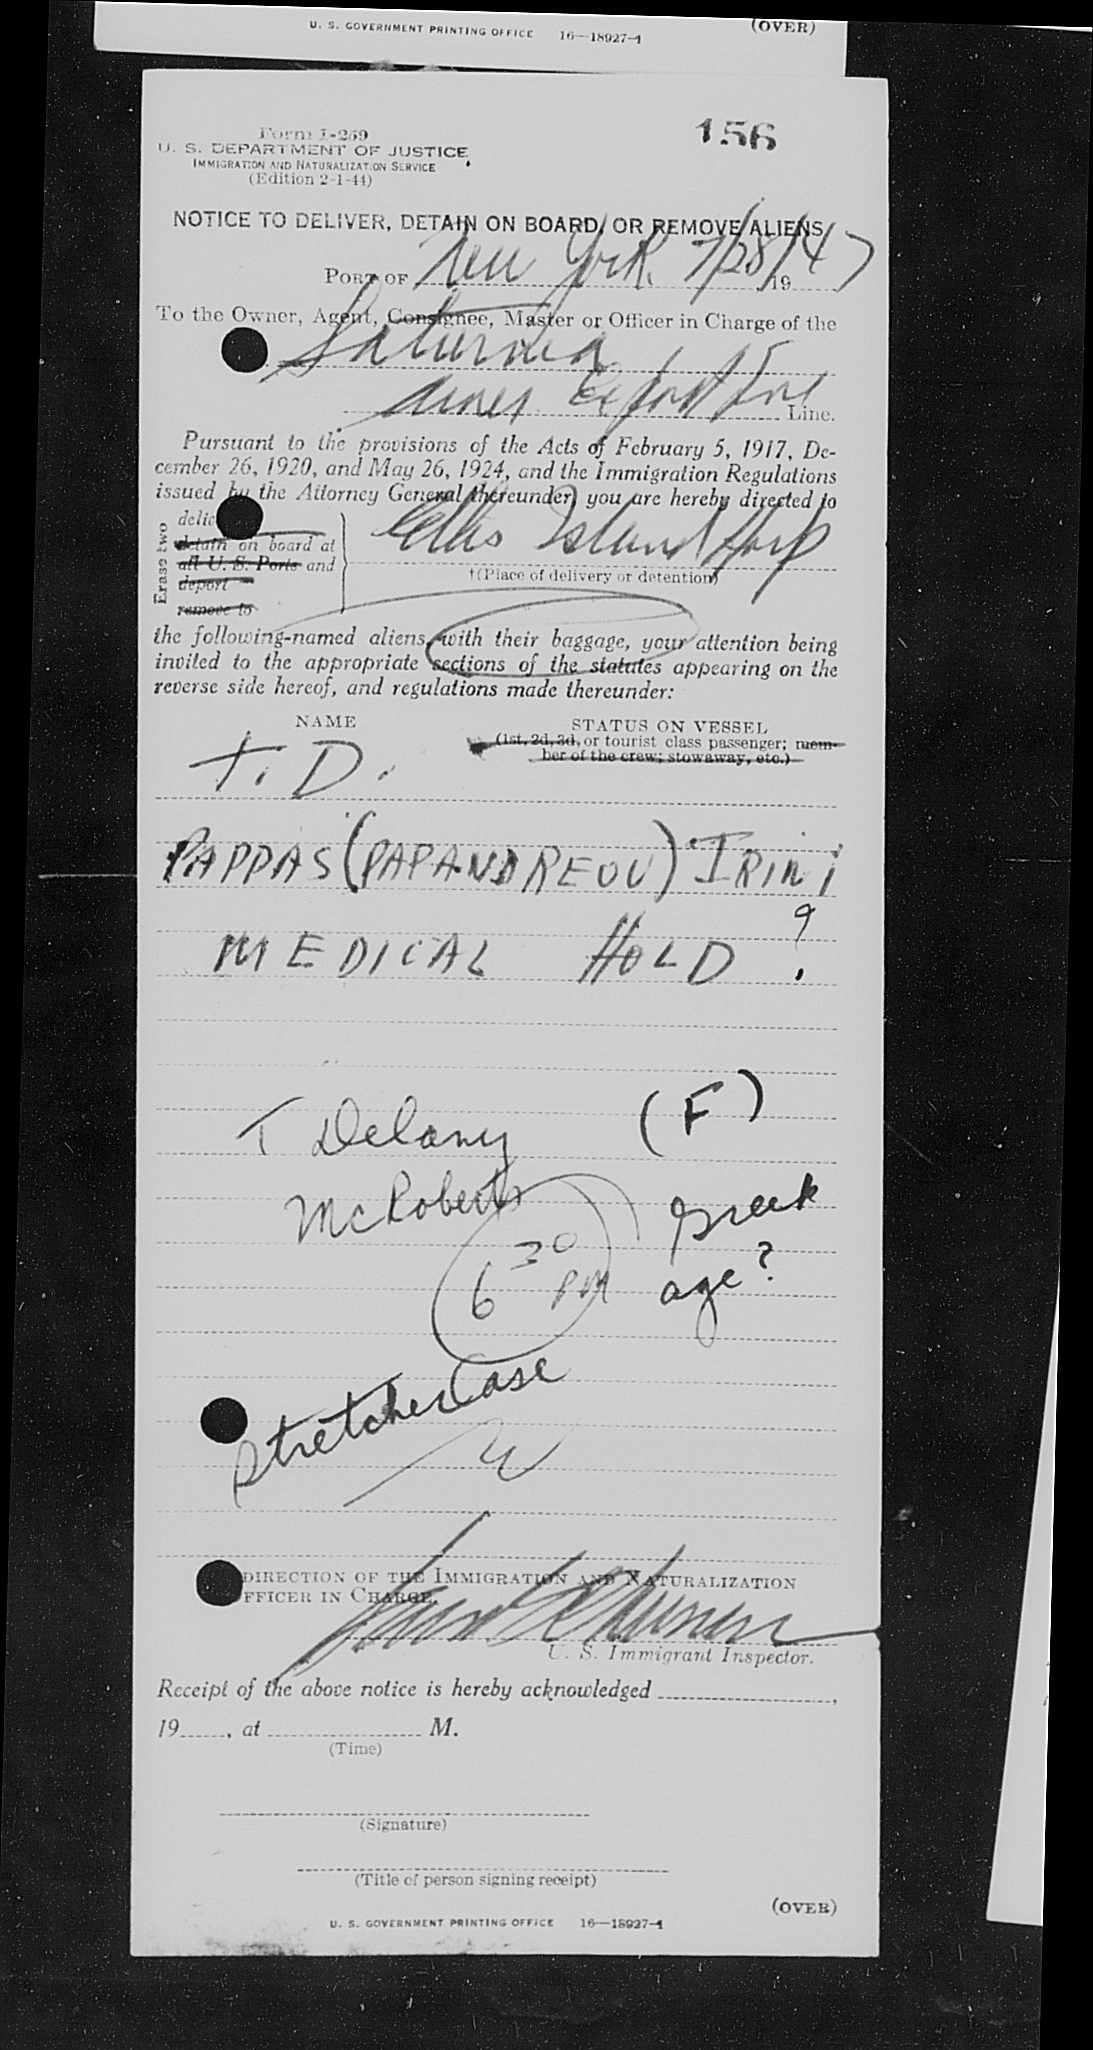 U. S. GOVERNMENT PRINTING OFFICE 16—18927-1 (OVER)
156
Form I-259
U. S. DEPARTMENT OF JUSTICE
IMMIGRATION AND NATURALIZATION SERVICE
(Edition 2-1-44)
NOTICE TO DELIVER, DETAIN ON BOARD, OR REMOVE ALIENS
PORT OF New York, 7/28/47 19
To the Owner, Agent, Consignee, Master or Officer in Charge of the
Saturnia
Amer Export Line Line.
Pursuant to the provisions of the Acts of February 5, 1917, De-
cember 26, 1920, and May 26, 1924, and the Immigration Regulations
issued by the Attorney General thereunder, you are hereby directed to
Erase two
delic
detain on board at
all U. S. Ports and
deport
remove to
Ellis Island Hosp
†(Place of delivery or detention)
the following-named aliens, with their baggage, your attention being
invited to the appropriate sections of the statutes appearing on the
reverse side hereof, and regulations made thereunder:
NAME STATUS ON VESSEL
(1st, 2d, 3d, or tourist class passenger; mem-
ber of the crew; stowaway, etc.)
T. D.
PAPPAS (PAPANDREOU) IRINI
MEDICAL HOLD ?
T Delany (F)
McRoberts Greek
6 30 PM age?
Stretcher Case
DIRECTION OF THE IMMIGRATION AND NATURALIZATION
FFICER IN CHARGE.
U. S. Immigrant Inspector.
Receipt of the above notice is hereby acknowledged ,
19 , at M.
(Time)
(Signature)
(Title of person signing receipt)
(OVER)
U. S. GOVERNMENT PRINTING OFFICE 16—18927-1